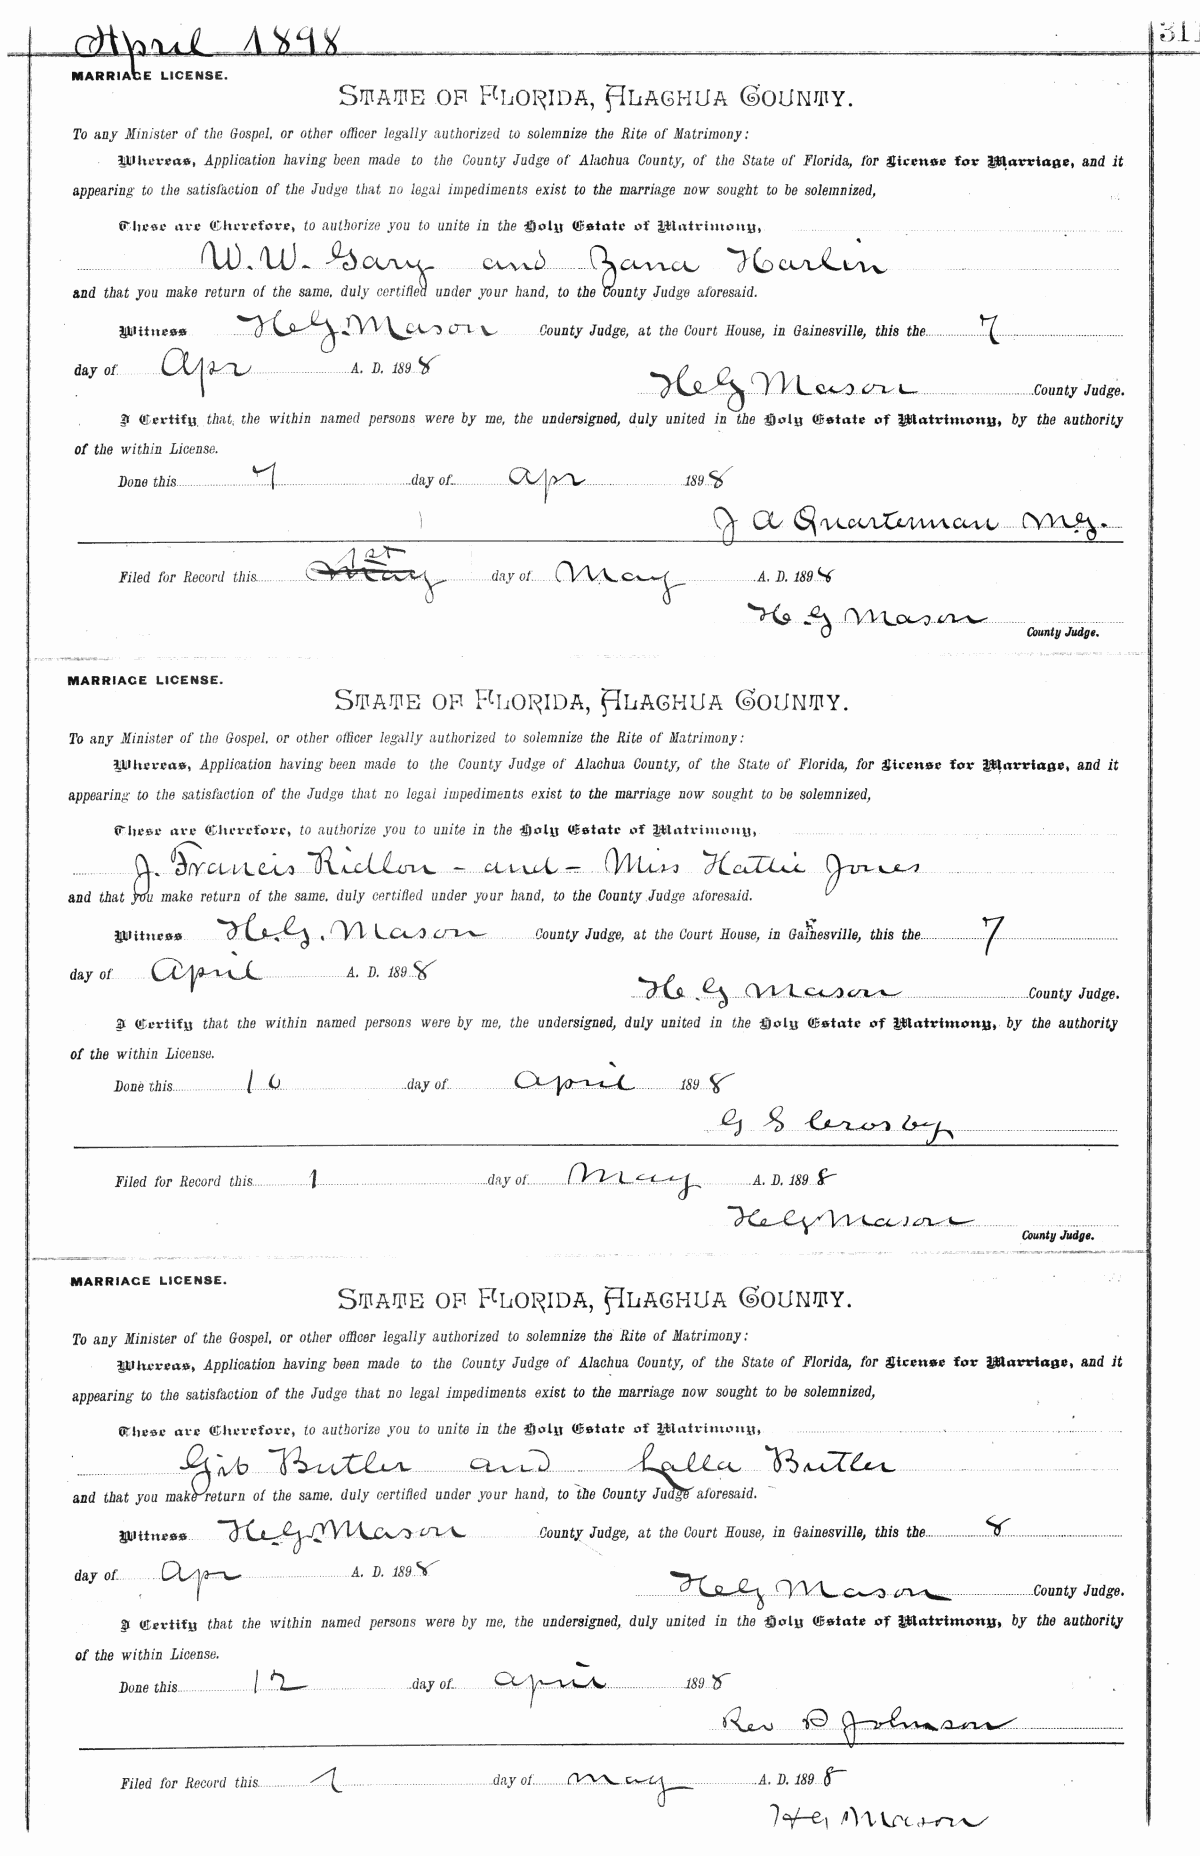 April 1898
311
MARRIAGE LICENSE.
STATE OF FLORIDA, ALACHUA COUNTY.
To any Minister of the Gospel, or other officer legally authorized to solemnize the Rite of Matrimony:
Whereas, Application having been made to the County Judge of Alachua County, of the State of Florida, for License for Marriage, and it
appearing to the satisfaction of the Judge that no legal impediments exist to the marriage now sought to be solemnized,
These are Therefore, to authorize you to unite in the Holy Estate of Matrimony,
W. W. Gary and Zana Harlin
and that you make return of the same, duly certified under your hand, to the County Judge aforesaid.
Witness H. G. Mason County Judge, at the Court House, in Gainesville, this the 7
day of Apr A. D. 1898
H G Mason County Judge.
I Certify that, the within named persons were by me, the undersigned, duly united in the Holy Estate of Matrimony, by the authority
of the within License.
Done this 7 day of Apr 1898
J A Quarterman M.G.
Filed for Record this 1st May day of May A. D. 1898
H G Mason
County Judge.
MARRIAGE LICENSE.
STATE OF FLORIDA, ALACHUA COUNTY.
To any Minister of the Gospel, or other officer legally authorized to solemnize the Rite of Matrimony:
Whereas, Application having been made to the County Judge of Alachua County, of the State of Florida, for License for Marriage, and it
appearing to the satisfaction of the Judge that no legal impediments exist to the marriage now sought to be solemnized,
These are Therefore, to authorize you to unite in the Holy Estate of Matrimony,
J. Francis Ridlon - and - Miss Hattie Jones
and that you make return of the same, duly certified under your hand, to the County Judge aforesaid.
Witness H. G. Mason County Judge, at the Court House, in Gainesville, this the 7
day of April A. D. 1898
H G Mason County Judge.
I Certify that the within named persons were by me, the undersigned, duly united in the Holy Estate of Matrimony, by the authority
of the within License.
Done this 10 day of April 1898
G S Crosby
Filed for Record this 1 day of May A. D. 1898
H G Mason
County Judge.
MARRIAGE LICENSE.
STATE OF FLORIDA, ALACHUA COUNTY.
To any Minister of the Gospel, or other officer legally authorized to solemnize the Rite of Matrimony:
Whereas, Application having been made to the County Judge of Alachua County, of the State of Florida, for License for Marriage, and it
appearing to the satisfaction of the Judge that no legal impediments exist to the marriage now sought to be solemnized,
These are Therefore, to authorize you to unite in the Holy Estate of Matrimony,
Gib Butler and Lalla Butler
and that you make return of the same, duly certified under your hand, to the County Judge aforesaid.
Witness H. G. Mason County Judge, at the Court House, in Gainesville, this the 8
day of Apr A. D. 1898
H G Mason County Judge.
I Certify that the within named persons were by me, the undersigned, duly united in the Holy Estate of Matrimony, by the authority
of the within License.
Done this 12 day of April 1898
Rev D Johnson
Filed for Record this 1 day of May A. D. 1898
H G Mason